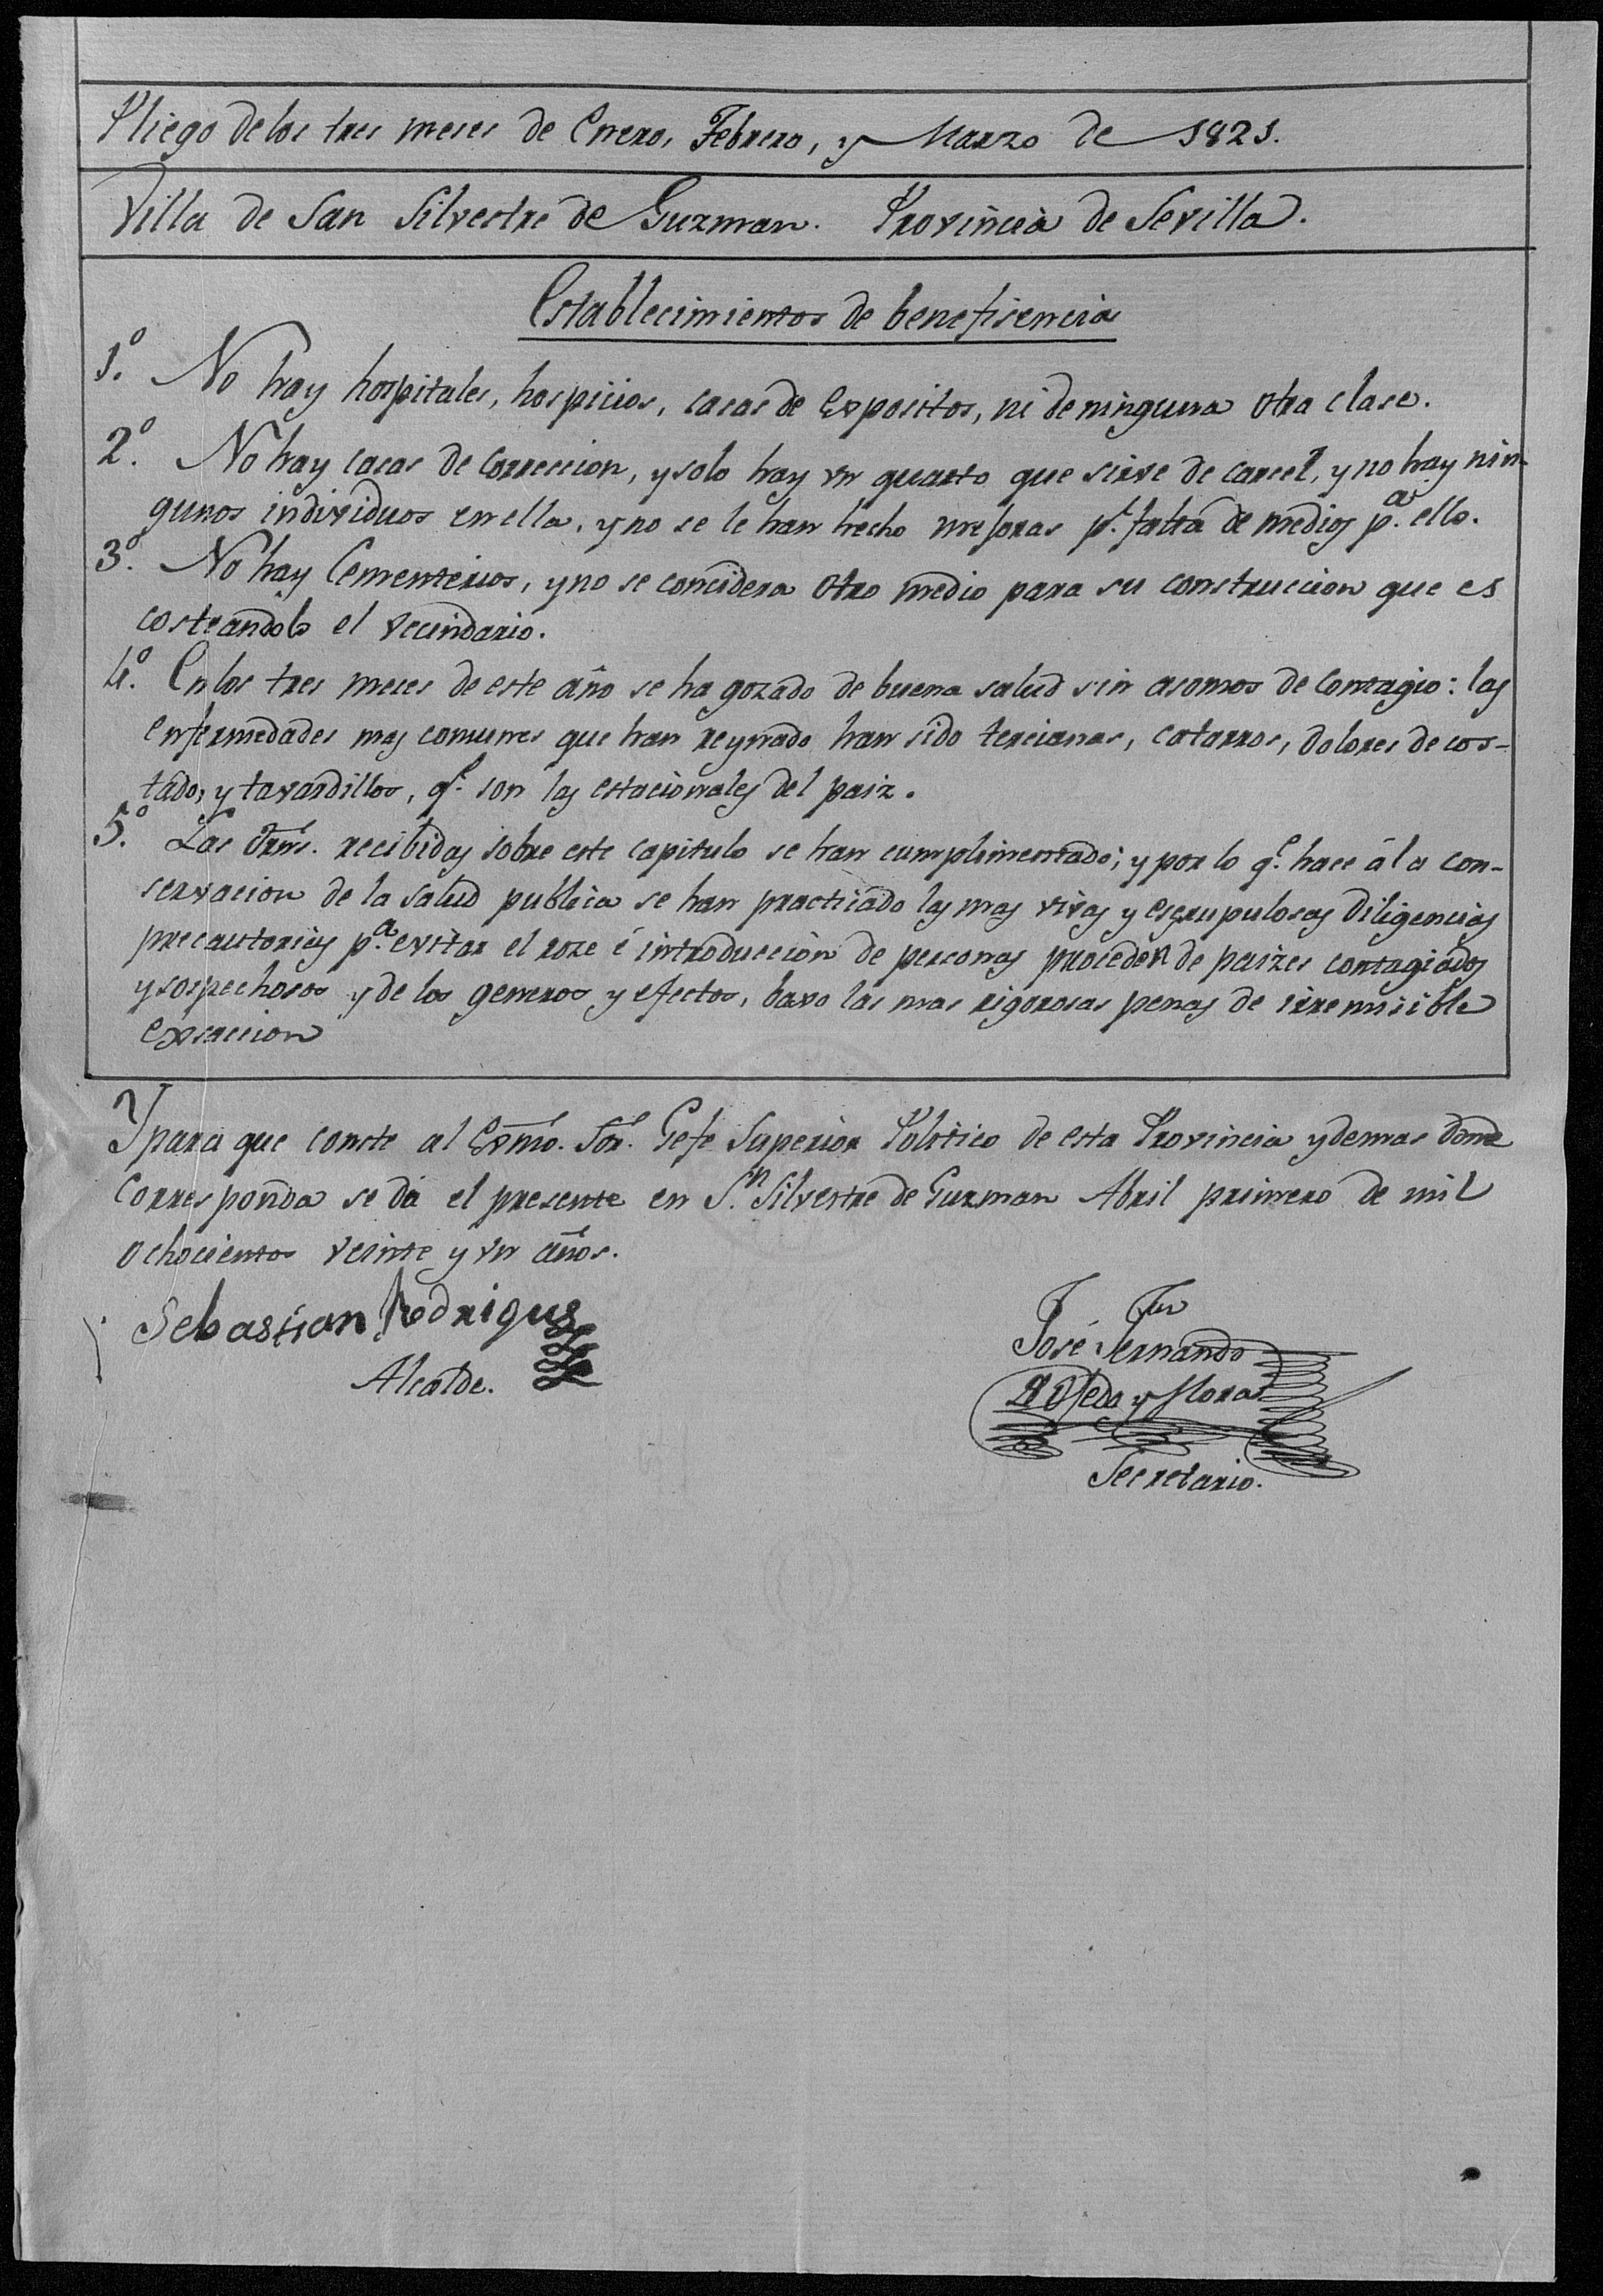 Pliego de los tres meses de Enero, Febrero, y Marzo de 1821.
Villa de San Silvestre de Guzman. Provincia de Sevilla.
Establecimientos de benefisencia
1.º No hay hospitales, hospicios, casas de Expositos, ni de ninguna otra clase.
2.º No hay casas de correccion, y solo hay un quarto que sirve de carcel, y no hay nin-
gunos individuos en ella, y no se le han hecho mejoras p.r falta de medios p.a ello.
3.º No hay Cementerios, y no se concidera otro medio para su construccion que es
costeandolo el vecindario.
4.º En los tres meses de este año se ha gozado de buena salud sin asomos de Contagio: las
enfermedades mas comunes que han reynado han sido tercianas, catarros, dolores de cos-
tado, y tavardillos, q.e son las estacionales del paiz.
5.º Las Orns. recibidas sobre este capitulo se han cumplimentado; y por lo q.e hace á la con-
servacion de la salud publica se han practicado las mas vivas y escrupulosas diligencias
precautorias p.a evitar el roze é introduccion de personas proceden de paizes contagiados
y sospechosos y de los generos y efectos, baxo las mas rigorosas penas de irremisible
exsaccion
Y para que conste al Exmo. Sor. Gefe Superior Politico de esta Provincia y demas donde
corresponda se dá el presente en S.n Silvestre de Guzman Abril primero de mil
ochocientos veinte y un años.
Sebastian Rodrigues
Alcalde.
José Fernando
y Mora
Secretario.